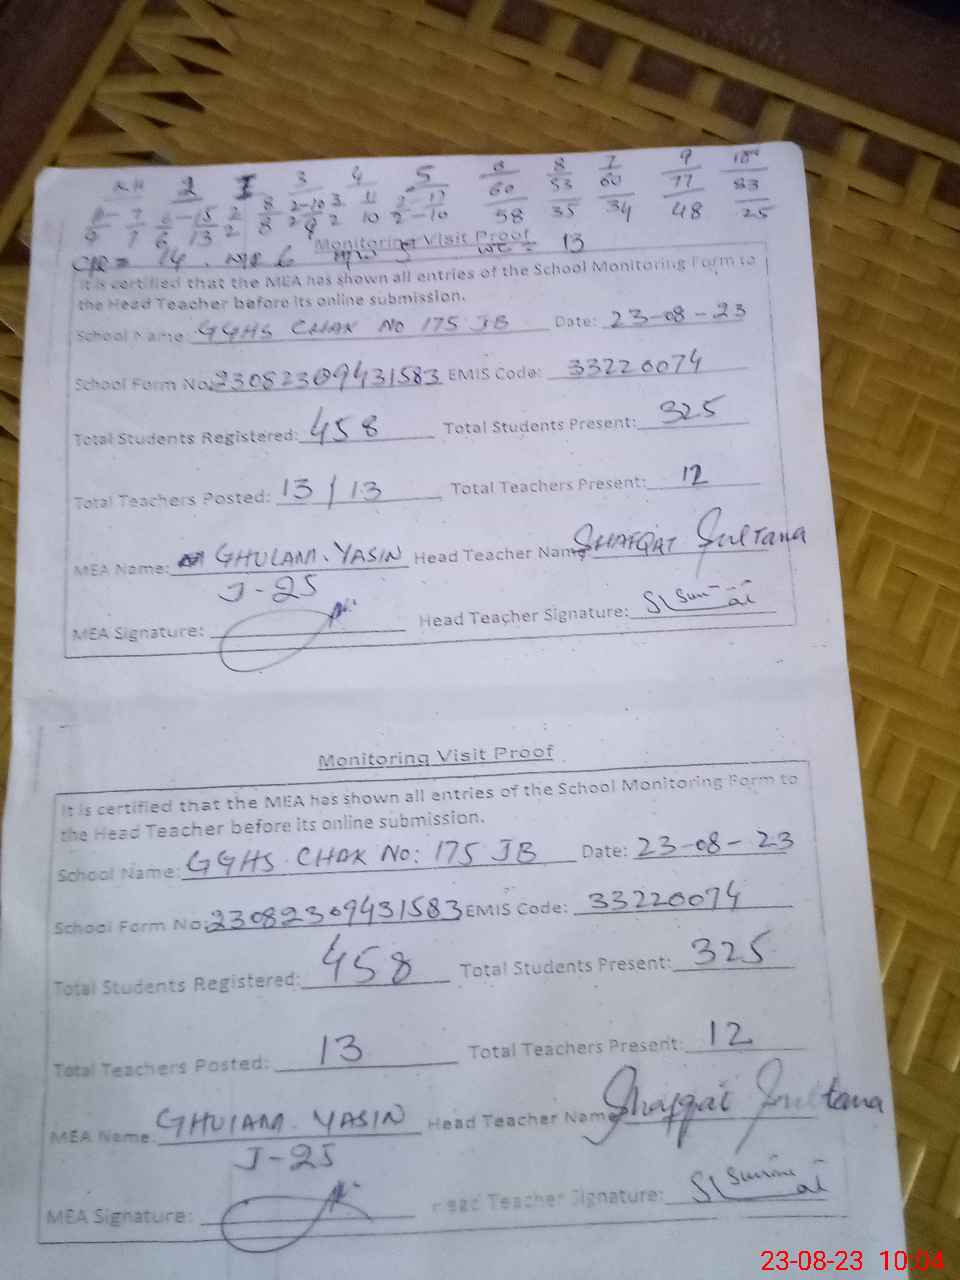 2 1 3 4 5 6 8 7 9 10th
60 53 60 77 83
58 35 34 48 25
Monitoring Visit Proof
CR = 14 13
It is certified that the MEA has shown all entries of the School Monitoring Form to
the Head Teacher before its online submission.
School Name: GGHS CHAK NO 175 JB Date: 23-08-23
School Form No: 23082309431583 EMIS Code: 33220074
Total Students Registered: 458 Total Students Present: 325
Total Teachers Posted: 13/13 Total Teachers Present: 12
MEA Name: GHULAM. YASIN Head Teacher Name SHAFQAT Sultana
J-25
MEA Signature: Head Teacher Signature:
Monitoring Visit Proof
It is certified that the MEA has shown all entries of the School Monitoring Form to
the Head Teacher before its online submission.
School Name: GGHS. CHAK NO: 175 JB Date: 23-08-23
School Form No: 23082309431583 EMIS Code: 33220074
Total Students Registered: 458 Total Students Present: 325
Total Teachers Posted: 13 Total Teachers Present: 12
MEA Name: GHULAM. YASIN Head Teacher Name Shafqat Sultana
J-25
MEA Signature: Head Teacher Signature:
23-08-23 10:04